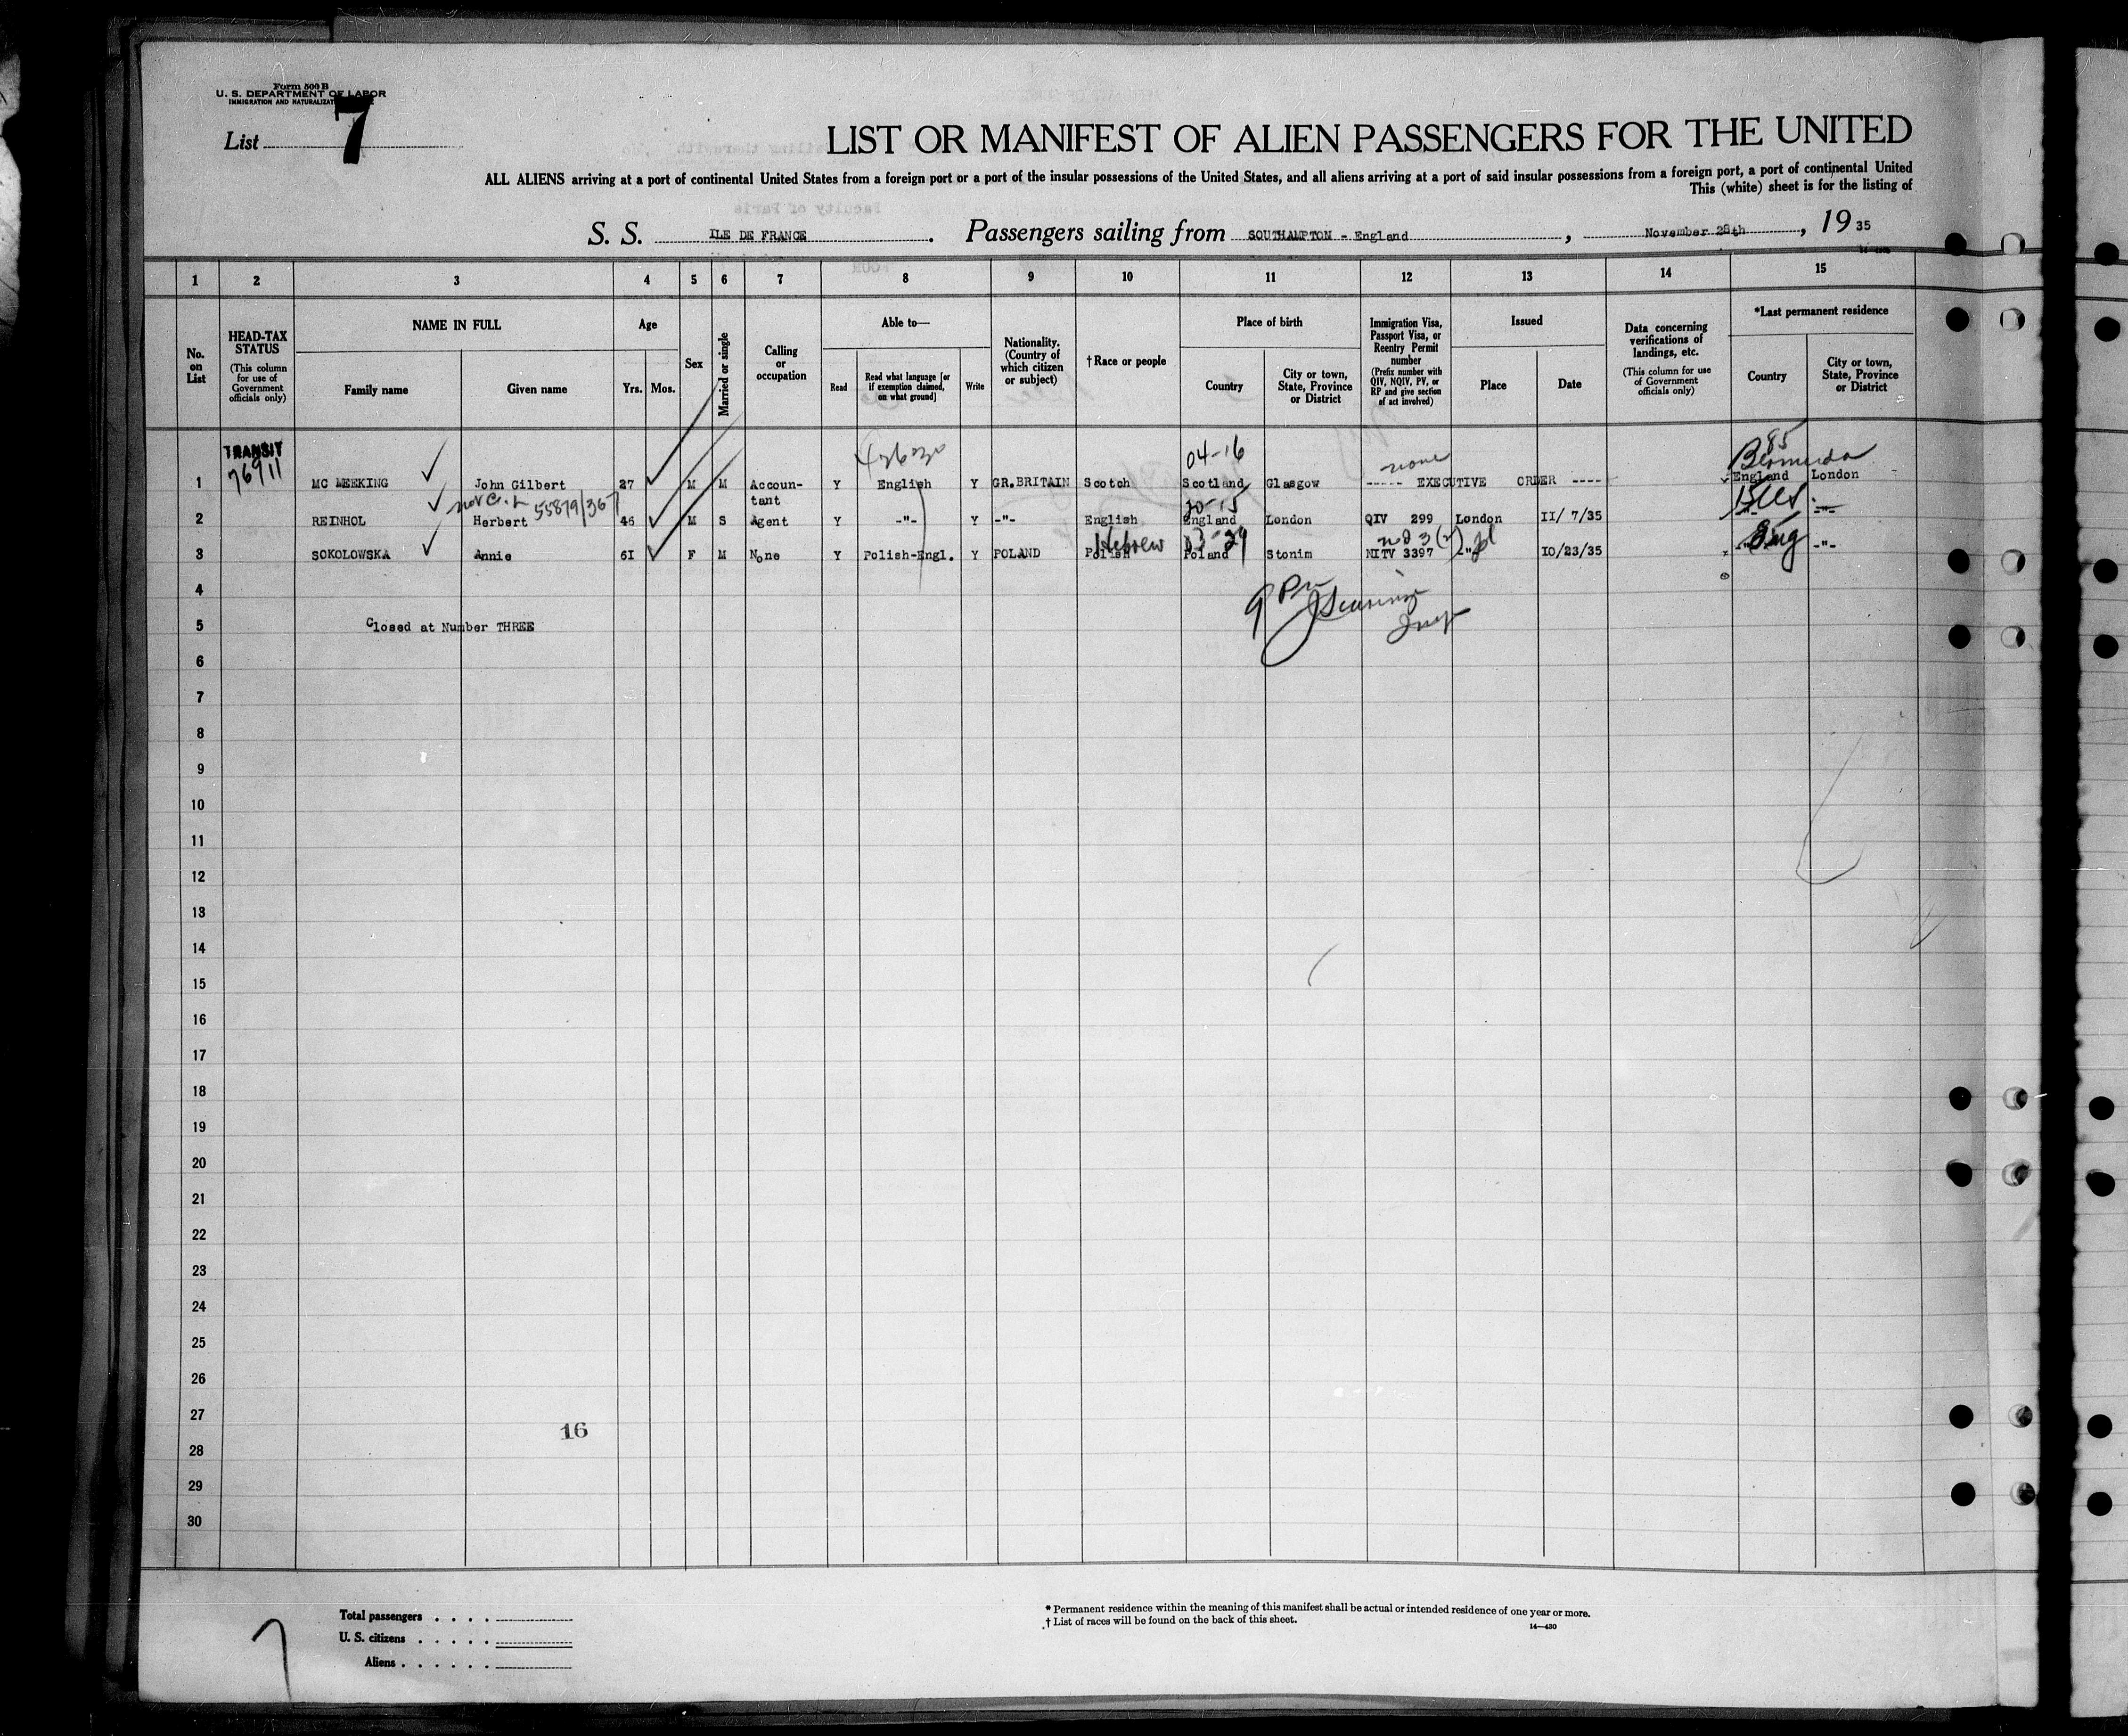 Form 500 B
U. S. DEPARTMENT OF LABOR
IMMIGRATION AND NATURALIZAT
List 7
LIST OR MANIFEST OF ALIEN PASSENGERS FOR THE UNITED
ALL ALIENS arriving at a port of continental United States from a foreign port or a port of the insular possessions of the United States, and all aliens arriving at a port of said insular possessions from a foreign port, a port of continental United
This (white) sheet is for the listing of
S. S. ILE DE FRANCE. Passengers sailing from SOUTHAMPTON - England, November 28th, 1935
1 2 3 4 5 6 7 8 9 10 11 12 13 14 15
No. on List
HEAD-TAX STATUS (This column for use of Government officials only)
NAME IN FULL
Family name
Given name
Age
Yrs. Mos.
Sex
Married or single
Calling or occupation
Able to—
Read
Read what language [or if exemption claimed, on what ground]
Write
Nationality. (Country of which citizen or subject)
† Race or people
Place of birth
Country
City or town, State, Province or District
Immigration Visa, Passport Visa, or Reentry Permit number (Prefix number with QIV, NQIV, PV, or RP and give section of act involved)
Issued
Place
Date
Data concerning verifications of landings, etc. (This column for use of Government officials only)
*Last permanent residence
Country
City or town, State, Province or District
TRANSIT 04-16 none 85 Bermuda
76911
1 MC MEEKING John Gilbert 27 M M Accoun- Y English Y GR.BRITAIN Scotch Scotland Glasgow ----- EXECUTIVE ORDER ---- England London
tant
55879/367 20-15
2 REINHOL Herbert 46 M S Agent Y -"- Y -"- English England London QIV 299 London II/ 7/35 -"- -"-
Hebrew 03-29 Eng
3 SOKOLOWSKA Annie 6I F M None Y Polish-Engl. Y POLAND Polish Poland Stonim NITV 3397 -"- IO/23/35 -"- -"-
4
5 Closed at Number THREE
6
7
8
9
10
11
12
13
14
15
16
17
18
19
20
21
22
23
24
25
26
27
16
28
29
30
Total passengers . . . .
U. S. citizens . . . . .
Aliens . . . . . .
* Permanent residence within the meaning of this manifest shall be actual or intended residence of one year or more.
† List of races will be found on the back of this sheet.
14—430
7